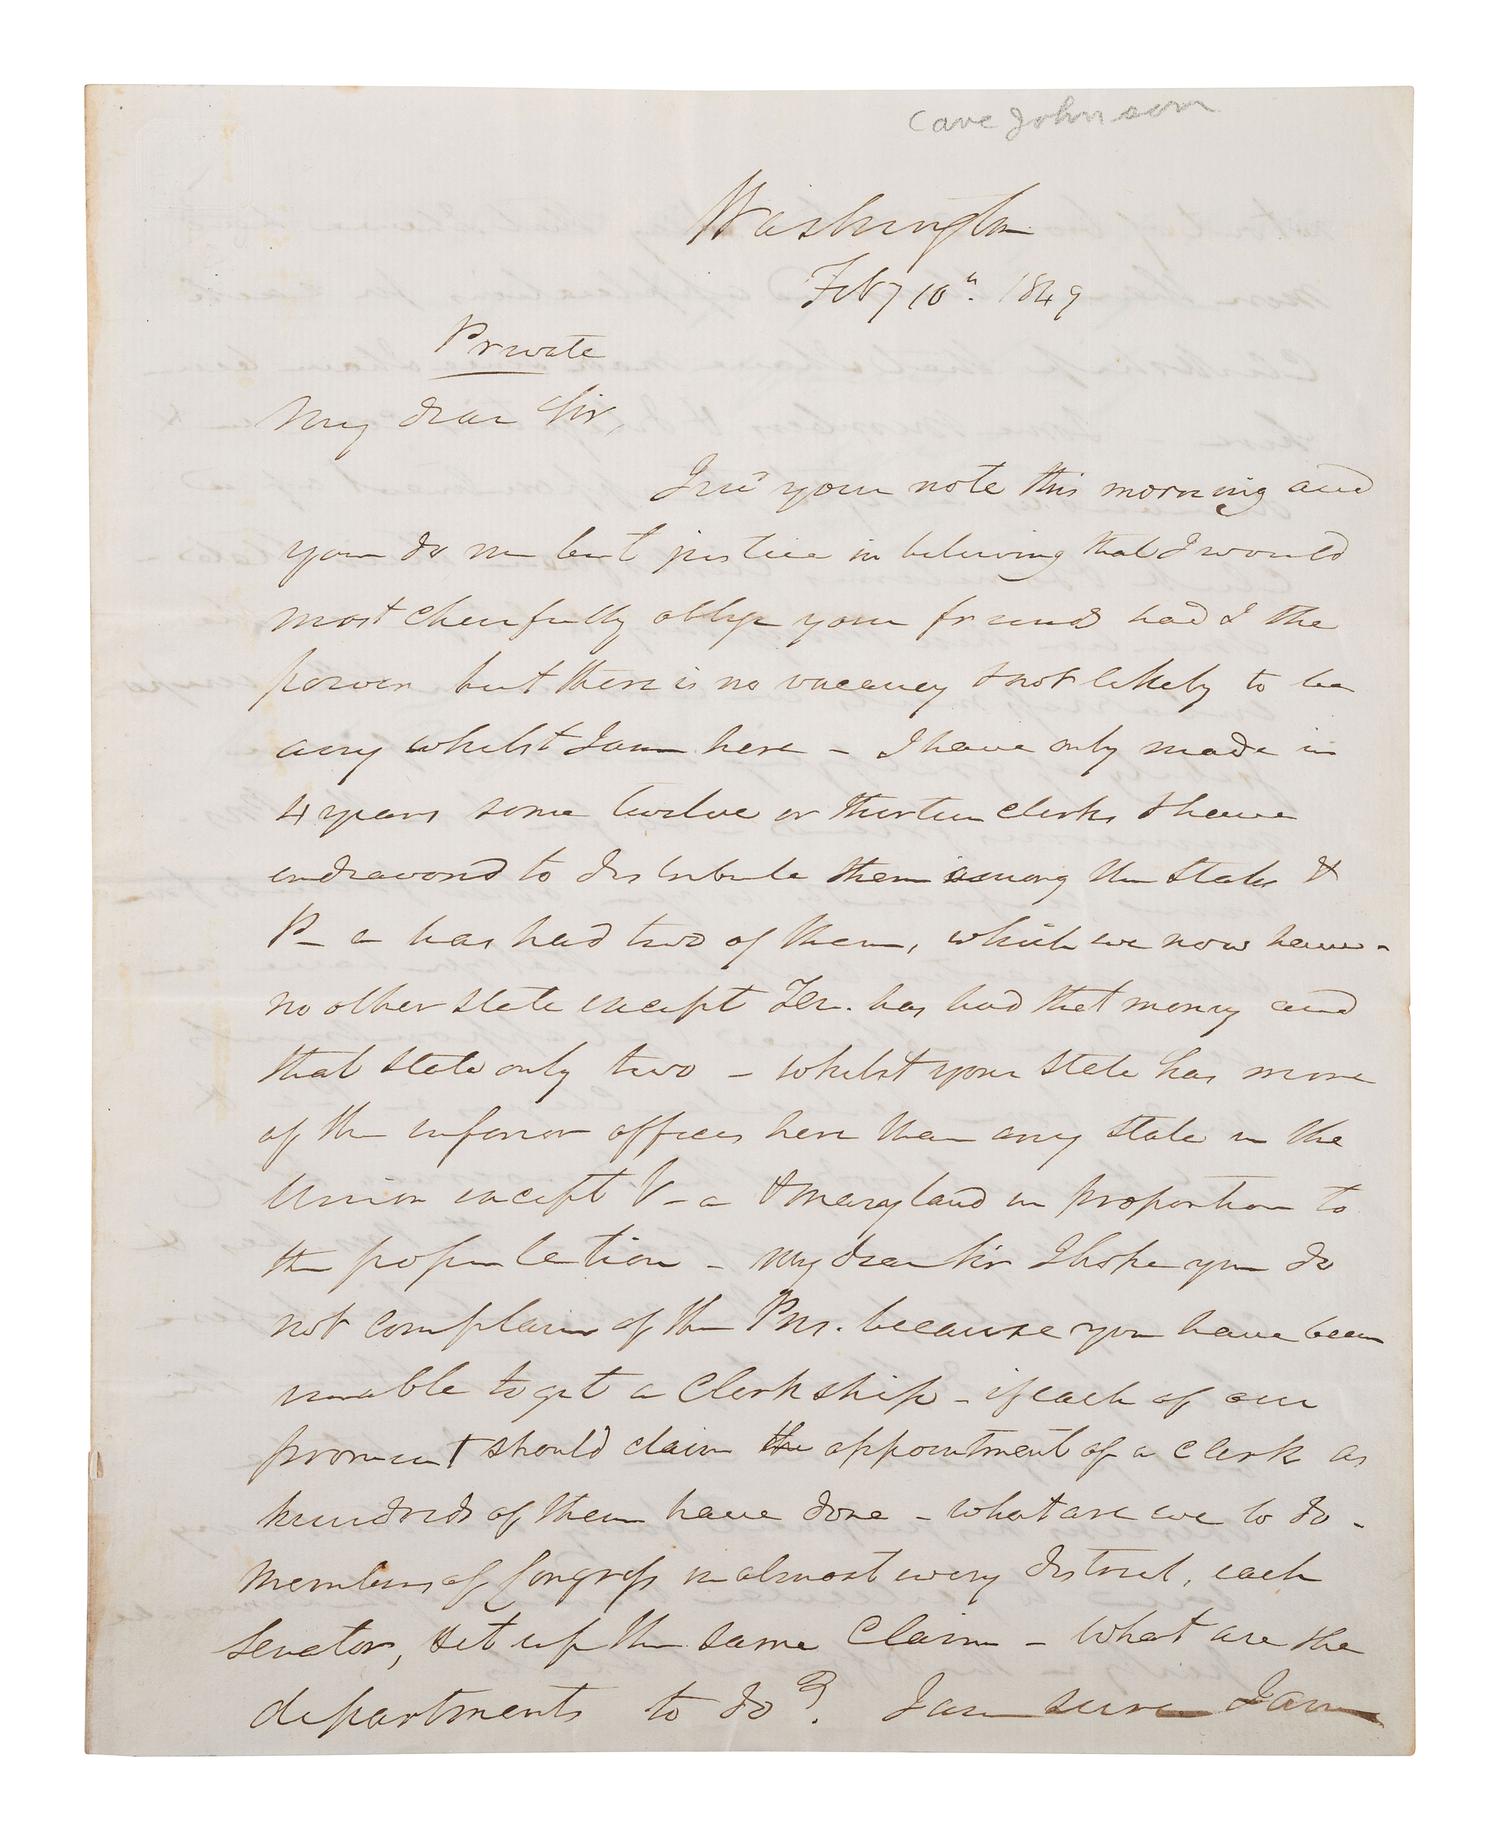 Cave Johnson
Washington
Feby 10th. 1849
Private
My dear Sir,
I recd your note this morning and
you do me but justice in believing that I would
most cheerfully oblige your friend had I the
power but there is no vacancy & not likely to be
any whilst I am here - I have only made in
4 years some twelve or thirteen clerks & have
endeavord to distribute them among the States &
P-a has had two of them, which we now have -
no other state except Ten. has had that many and
that state only two - whilst your State has more
of the inferior offices here than any State in the
Union except V-a & Maryland in proportion to
the population - My dear Sir I hope you do
not complain of the Pres. because you have been
unable to get a Clerkship - if each of our
prominent should claim the appointment of a Clerk as
hundreds of them have done - what are we to do -
Members of Congress in almost every district, each
Senator, set up the same Claim - What are the
departments to do? I am sure I am